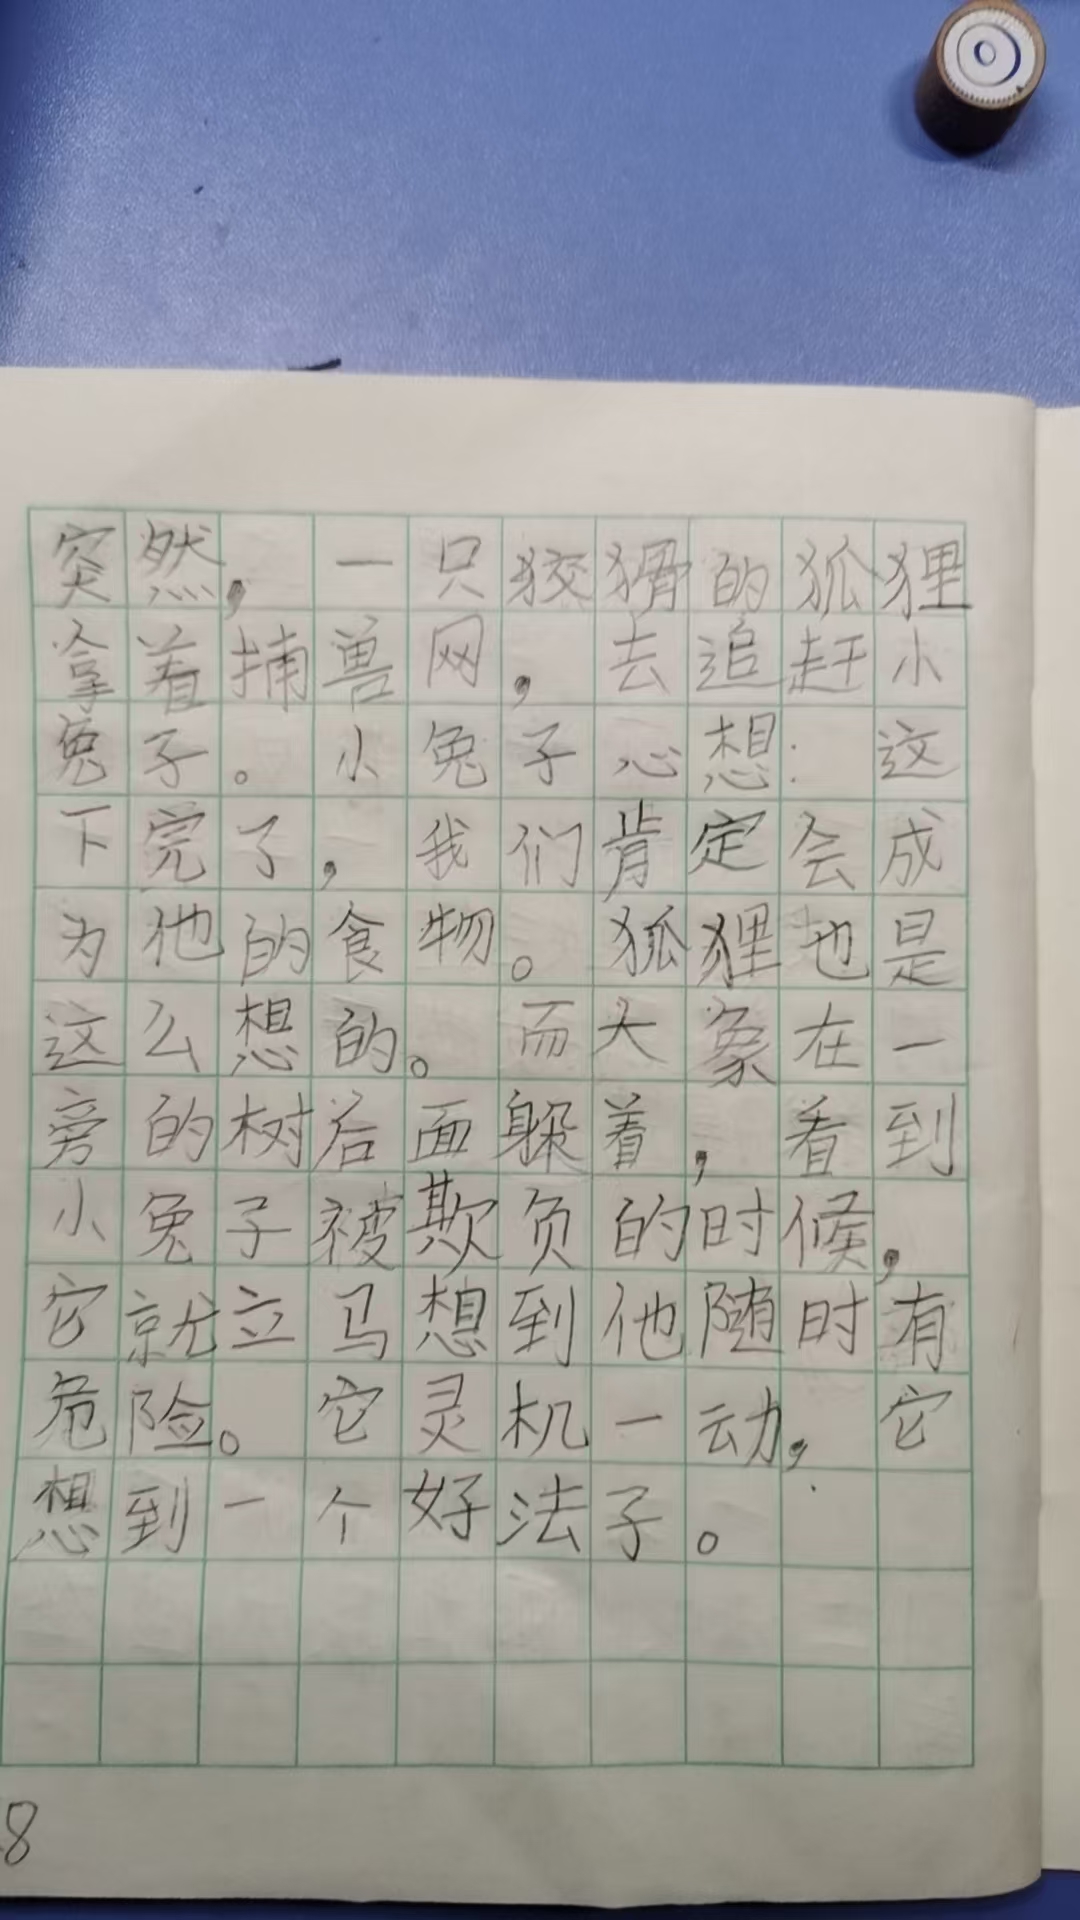 突然,一只狡猾的狐狸
拿着捕兽网,去追赶小
兔子。小兔子心想:这
下完了,我们肯定会成
为他的食物。狐狸也是
这么想的。而大象在一
旁的树后面躲着,看到
小兔子被欺负的时候,
它就立马想到他随时有
危险。它灵机一动,它
想到一个好法子。
8